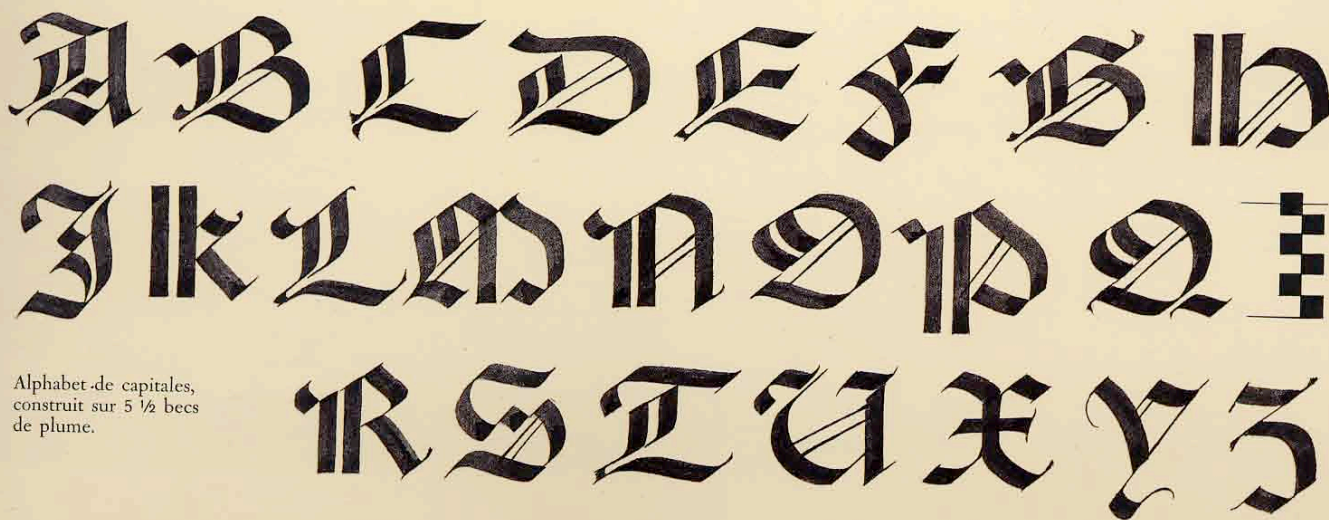 A B C D E F G H
I K L M N O P Q
Alphabet de capitales,
construit sur 5 ½ becs
de plume.
R S T U X Y Z